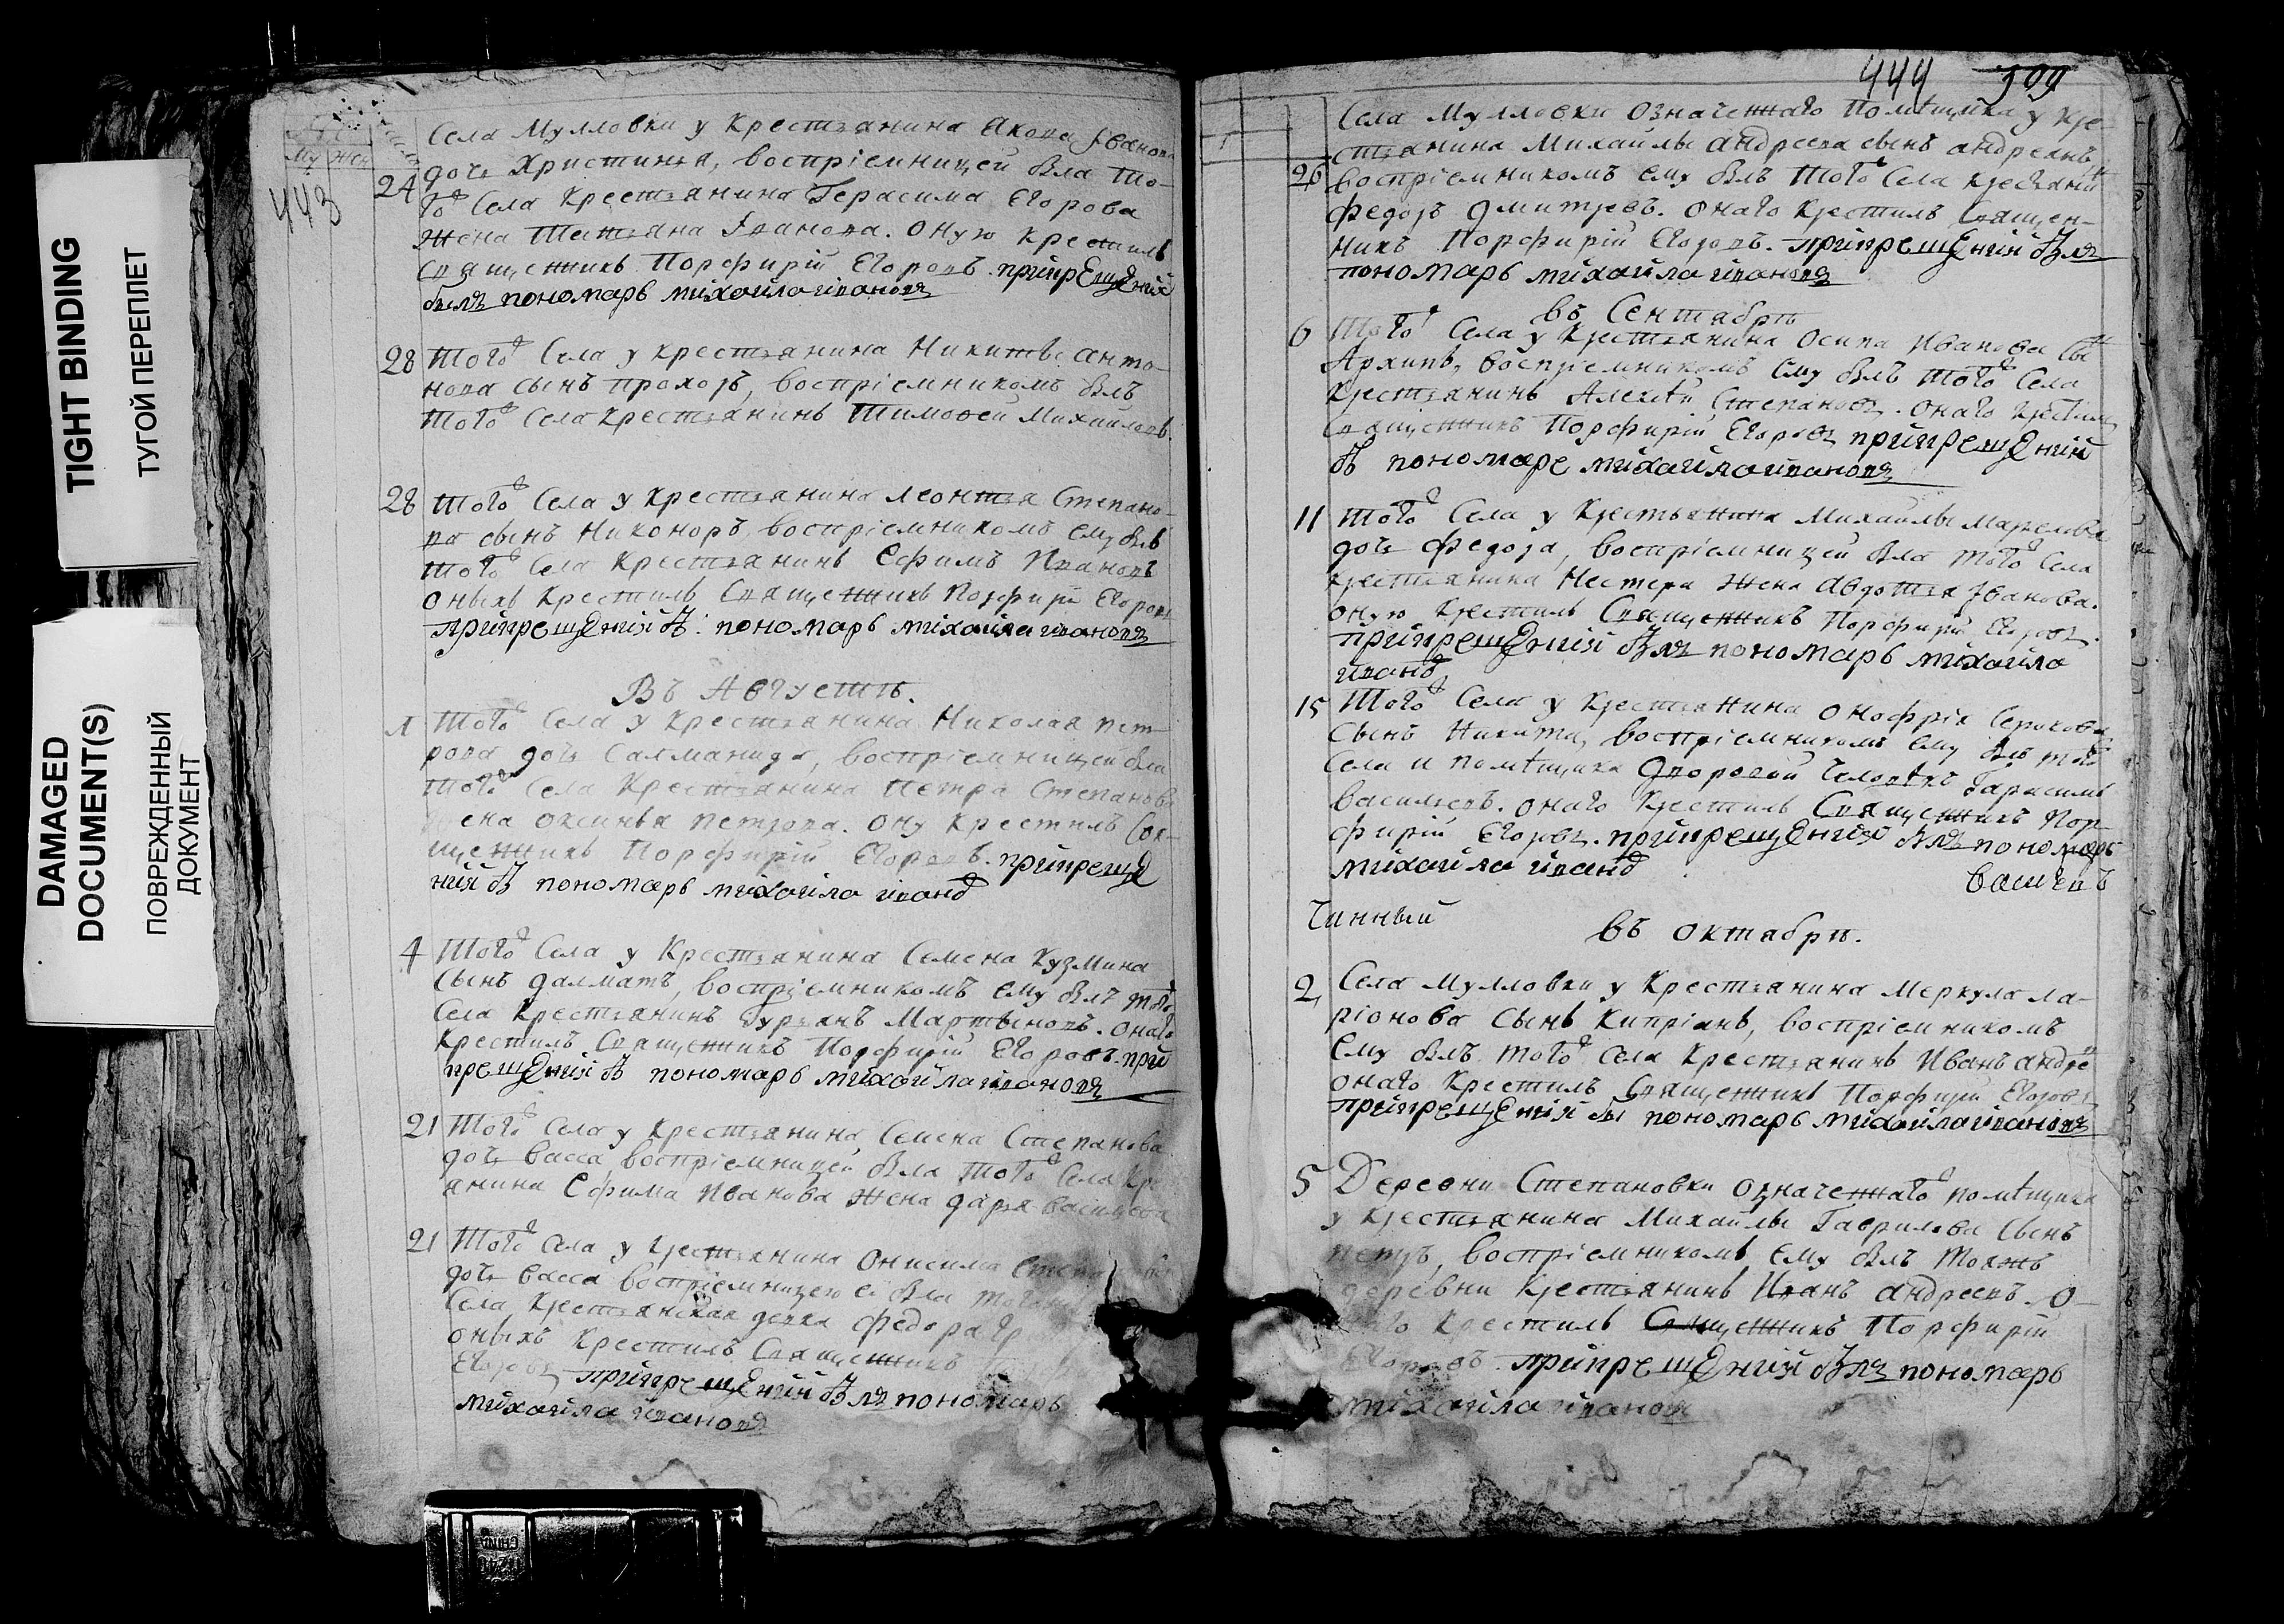 TIGHT BINDING
ТУГОЙ ПЕРЕПЛЕТ
DAMAGED
DOCUMENT(S)
ПОВРЕЖДЕННЫЙ
ДОКУМЕНТ
Му жен
443
Села Мулловки у крестьянина Якова Иванова
24 дочь Христинья, воспріемницей была то-
го села крестьянина Герасима Егорова
жена Татьяна Иванова. оную крестилъ
священникъ Порфирій Егоровъ. при крещеніи
былъ пономарь михайла ивановъ
28 Того села у крестьянина Никиты Анто-
нова сынъ прохоръ, воспріемникомъ былъ
того села крестьянинъ Тимофей Михайловъ.
28 Того села у крестьянина леонтья Степано-
ва сынъ Никоноръ, воспріемникомъ ему былъ
того села крестьянинъ Ефимъ Ивановъ
оныхъ крестилъ священникъ Порфирій Егоровъ
при крещеніи бы: пономарь михайла ивановъ
Въ Августѣ.
1 Того села у крестьянина Николая пет-
рова дочь Саламанида, воспріемницей была
того села крестьянина Петра Степанова
жена оксинья петрова. ону крестилъ свя-
щенникъ Порфирій Егоровъ. при креще
ніи бы пономарь михайла иванов
4 Того села у крестьянина Семена Кузмина
сынъ далматъ, воспріемникомъ ему былъ того
села крестьянинъ Гурьянъ Мартыновъ. онаго
крестилъ священникъ Порфирій Егоровъ. при
крещеніи бы пономарь михайла ивановъ
21 Того села у крестьянина Семена Степанова
дочь васса воспріемницей была того села кре
янина Ефима Иванова жена дарья василева
21 Того села у крестьянина Онисима
дочь васса воспріемницею ей была
села крестьянская девка федора
оныхъ крестилъ священникъ
Егоровъ при крещеніи былъ пономарь
михайла ивановъ
444 509
Села Мулловки означеннаго помѣщика у кре-
стьянина Михайлы андреева сынъ андреянъ,
26 воспріемникомъ ему былъ того села крестьянин
федоръ дмитревъ. онаго крестилъ священ-
никъ Порфирій Егоровъ. при крещеніи былъ
пономарь михайла ивановъ
въ Сентябрѣ
6 Того села у крестьянина Осипа Иванова сы
Архипъ, воспріемникомъ ему былъ того села
крестьянинъ Алексѣй Степановъ. онаго крестилъ
священникъ Порфирій Егоровъ при крещеніи
бы пономаре михайла ивановъ
11 того села у крестьянина Михайлы Маркелова
дочь федора, воспріемницей была того села
крестьянина Нестера жена авдотья Иванова.
оную крестилъ священникъ Порфирій Егоровъ.
при крещеніи былъ пономарь михайла
иванов
15 Того села у крестьянина онофрія
сынъ Никита, воспріемникомъ ему былъ того
села и помѣщика дворовой человѣкъ Гарасимъ
васильевъ. онаго крестилъ священникъ Пор-
фирій Егоровъ. при крещеніи былъ пономарь
михайла иванов
чинный
въ октябрѣ.
2 Села Мулловки у крестьянина меркула ла-
ріонова сынъ Кипріянъ, воспріемникомъ
ему былъ того села крестьянинъ Иванъ андре
онаго крестилъ священникъ Порфирій Егоровъ
при крещеніи бы пономарь михайла ивановъ
5 Деревни Степановки означеннаго помѣщика
у крестьянина Михайлы Гаврилова сынъ
петръ, воспріемникомъ ему былъ тояжъ
деревни крестьянинъ Иванъ андреевъ. о-
наго крестилъ священникъ Порфирій
Егоровъ. при крещеніи былъ пономарь
михайла ивановъ